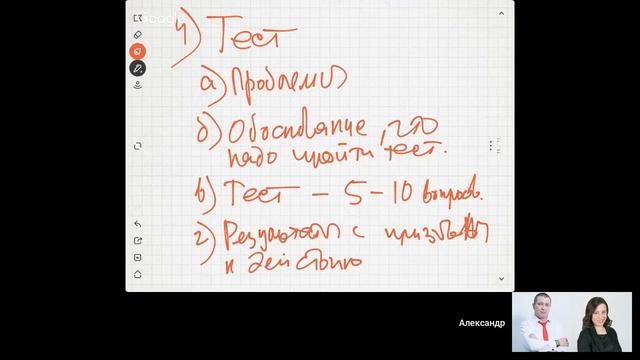 4) Тест
а) Проблемы
б) Обоснование, что
надо пройти тест.
в) Тест - 5-10 вопросов.
г) Результаты с призывом
к действию
Александр